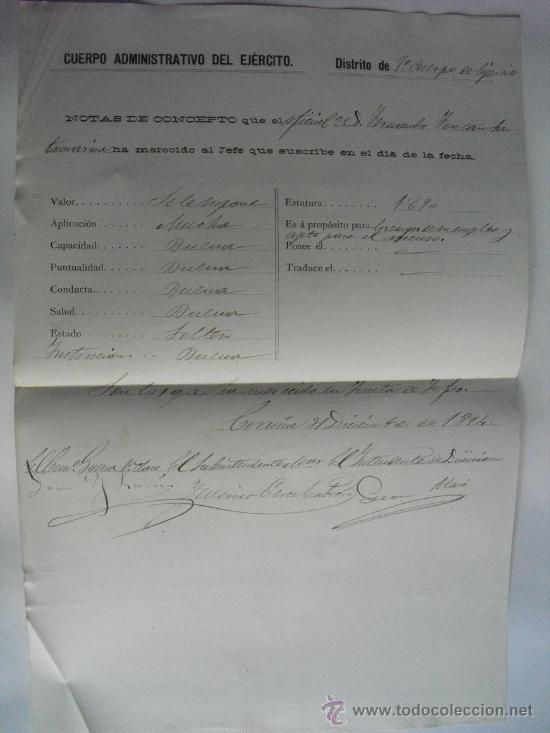 CUERPO ADMINISTRATIVO DEL EJÉRCITO.
Distrito de 7º Cuerpo de Ejército
NOTAS DE CONCEPTO que el oficial 2º D. Fernando
ha merecido al Jefe que suscribe en el dia de la fecha.
Valor........ Se le supone
Aplicación....... Mucha
Capacidad....... Buena
Puntualidad...... Buena
Conducta........ Buena
Salud......... Buena
Estado......... Soltero
Instrucion...... Buena
Estatura........ 1'690
Es á propósito para su empleo y
apto para el ascenso.
Posee él........
Traduce el.......
Son las que ha merecido en Junta de Jefes.
Coruña 31 Diciembre de 1894
El Com.º Guerra 1ª clase El Subintendente Mar El Intendente de Division
Federico Perez Cabrero
todocoleccion
www.todocoleccion.net